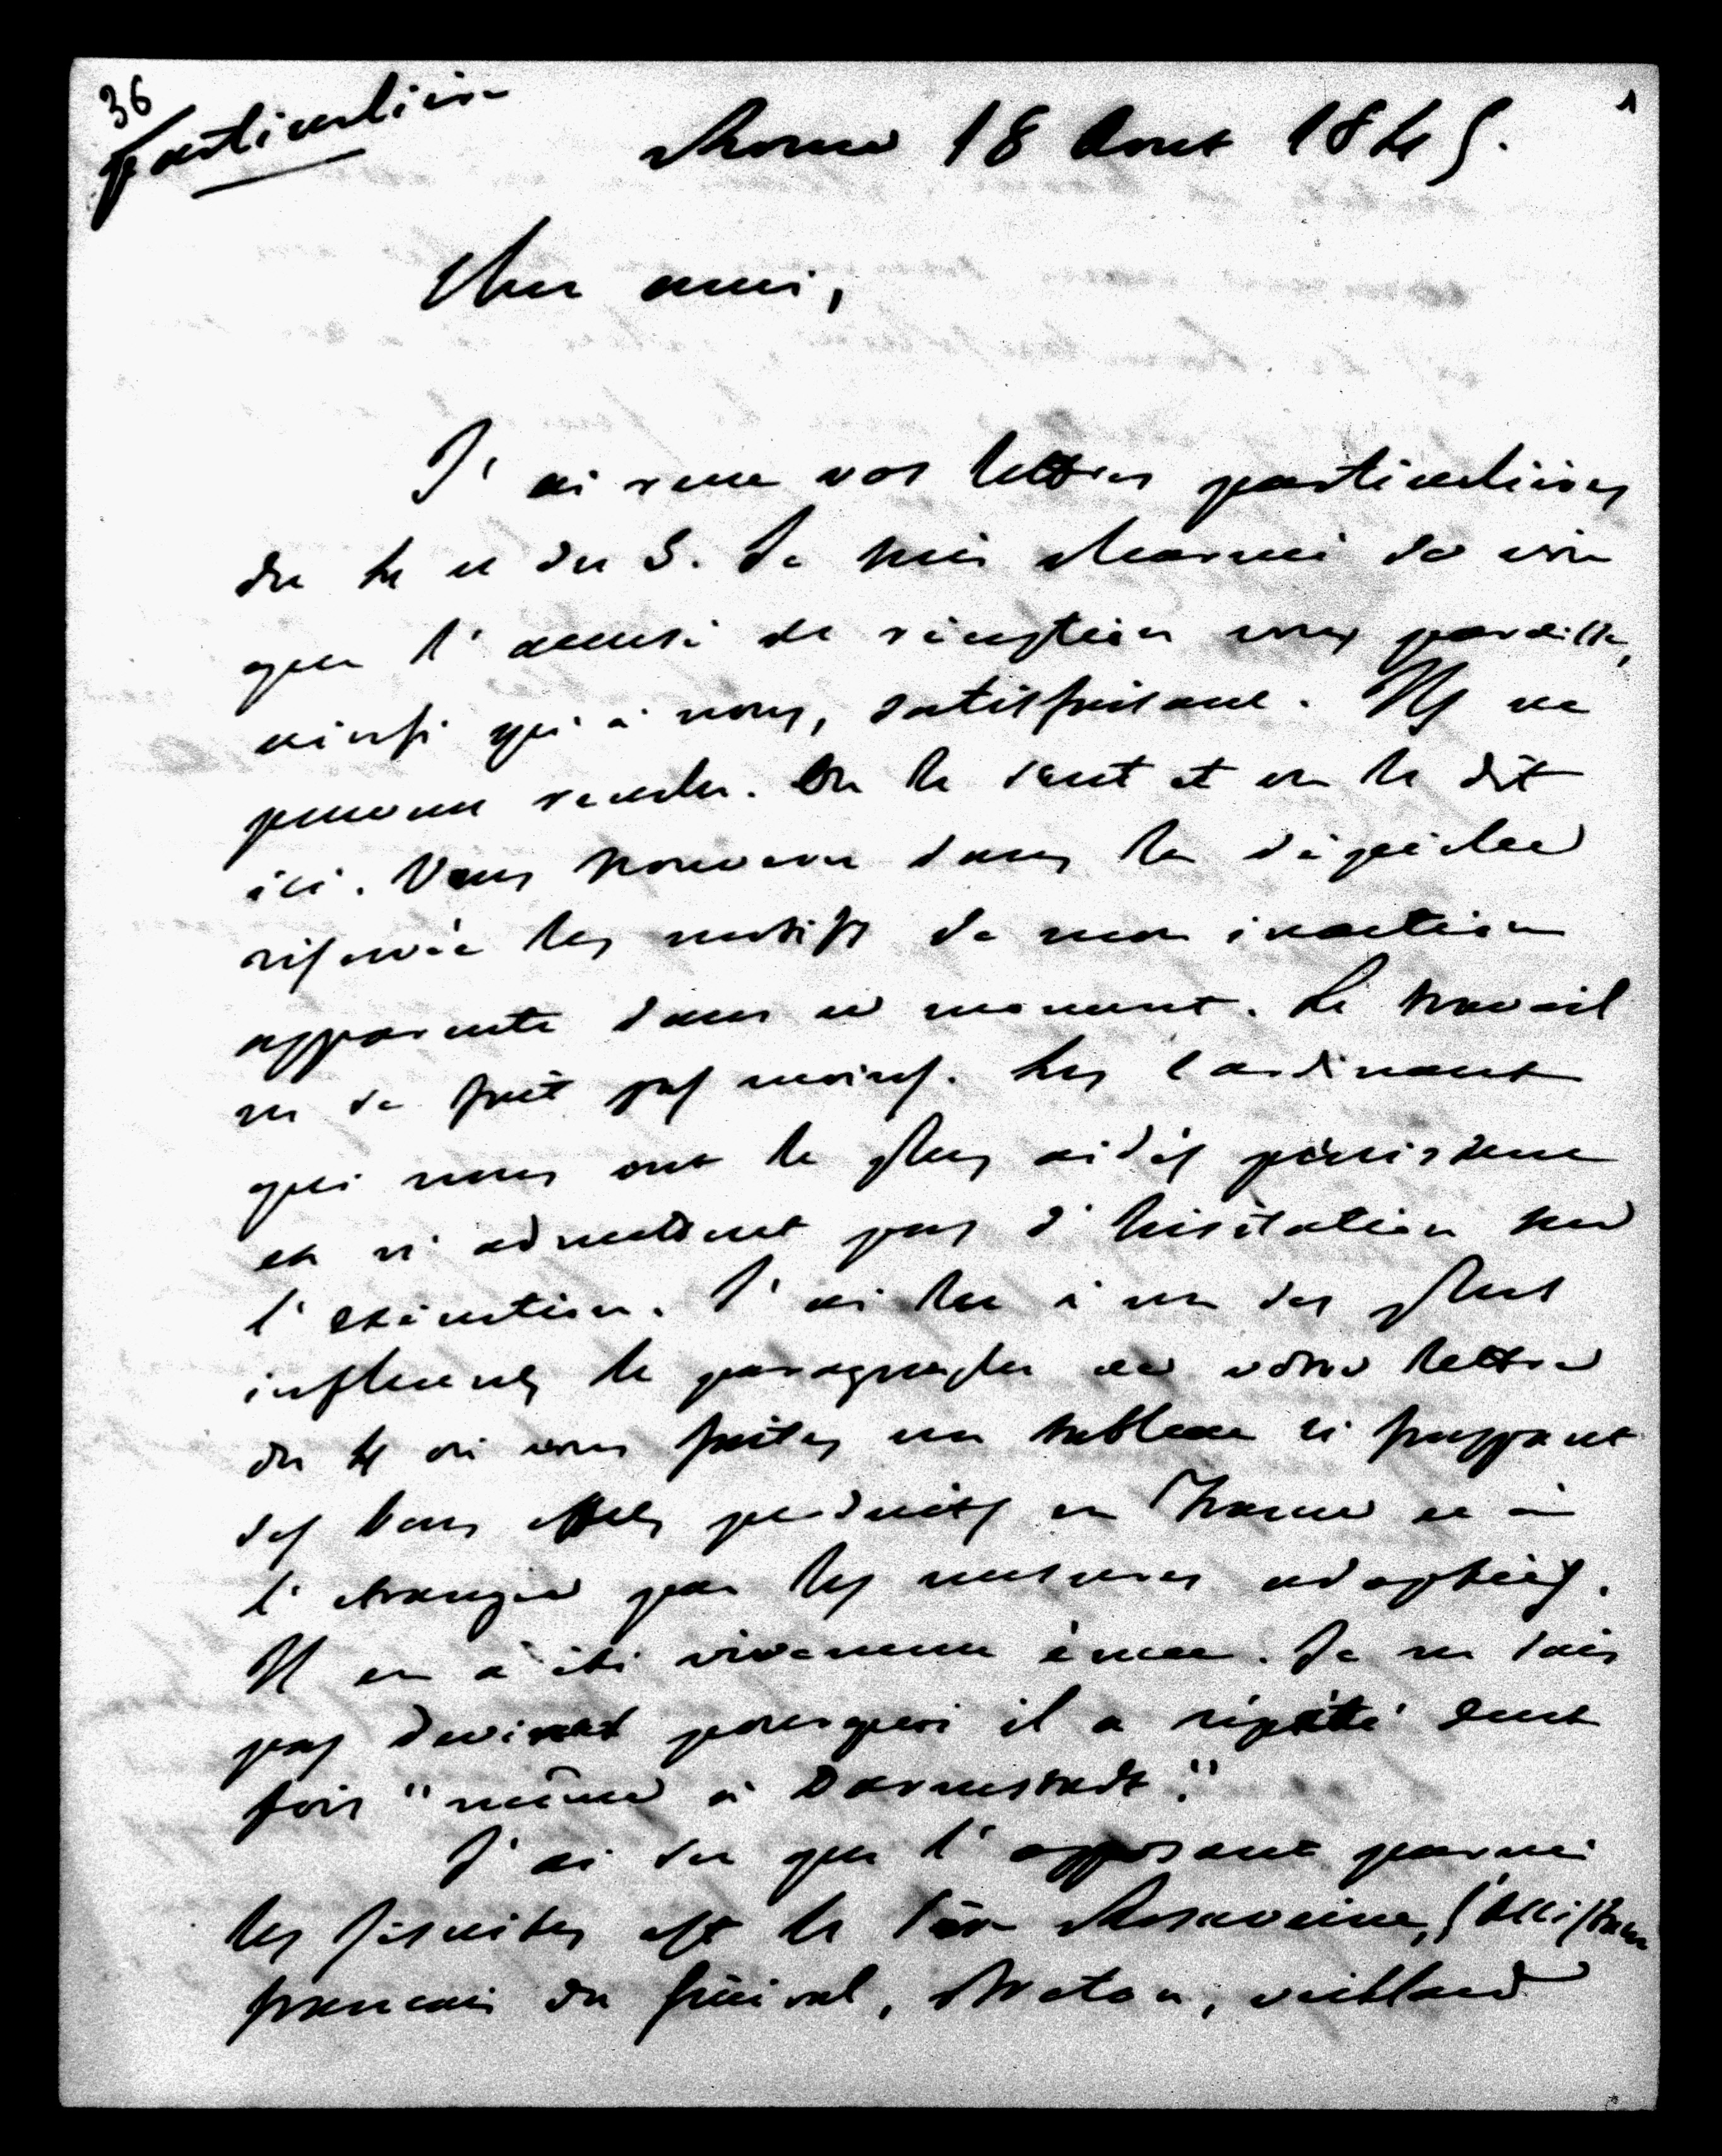 36
particulière
1
Rome 18 Aout 1845.
Cher ami,
J'ai reçu vos lettres particulières
du 4 et du 5. Je suis charmé de voir
que l'accusé de réception vous paraisse,
ainsi qu'à nous, satisfaisant. Ils ne
peuvent reculer. On le sent et on le dit
ici. Vous trouverez dans la dépêche
réservée les motifs de mon inaction
apparente dans ce moment. Le travail
ne se fait pas moins. Les Cardinaux
qui nous ont le plus aidés persistent
et n'admettent pas d'hésitation sur
l'exécution. J'ai lu à un des plus
influents le paragraphe de votre lettre
du 4 où vous faites un tableau si frappant
des bons effets produits en France et à
l'étranger par les mesures adoptées.
Il en a été vivement ému. Je ne sais
pas pourquoi il a répété cent
fois "même à Darmstadt".
J'ai su que l'opposant parmi
les Jésuites est le Père Rosaven, l'assistant
français du Général, Breton, vieillard